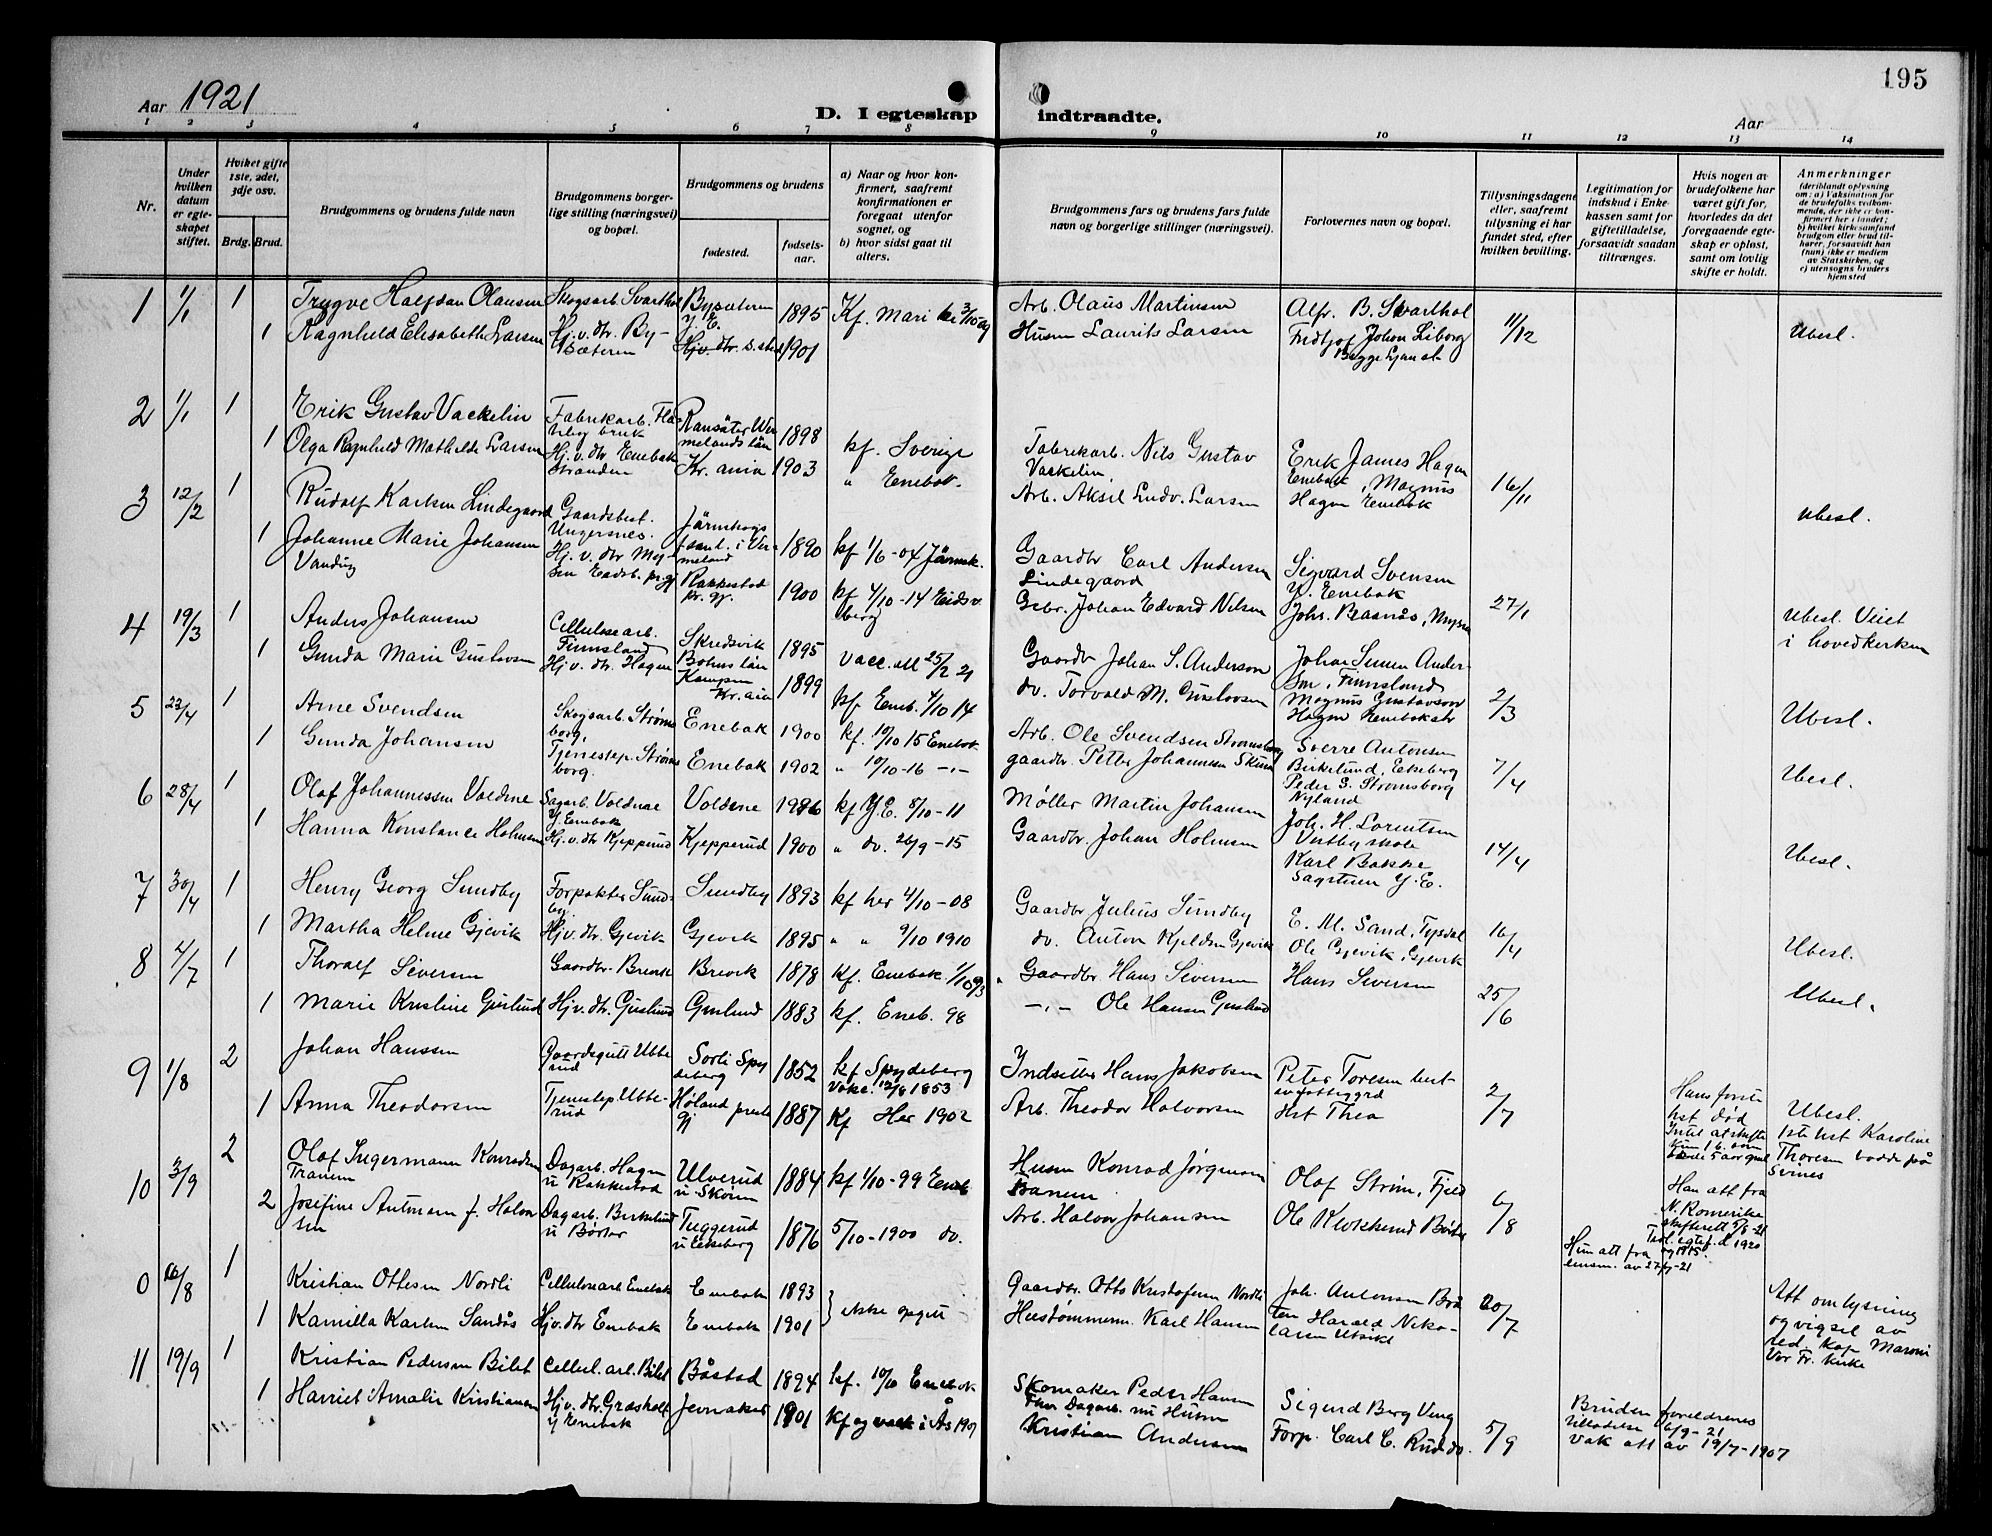 195
Aar 1921
D. I egteskap indtraadte.
Aar
1 2 3 4 5 6 7 8 9 10 11 12 13 14
Nr.
Under hvilken datum er egteskapet stiftet.
Hvilket gifte 1ste, 2det, 3dje osv.
Brdg. Brud.
Brudgommens og brudens fulde navn
Brudgommens borgerlige stilling (næringsvei) og bopæl.
Brudgommens og brudens
fødested. fødselsaar.
a) Naar og hvor konfirmert, saafremt konfirmationen er foregaat utenfor sognet, og
b) hvor sidst gaat til alters.
Brudgommens fars og brudens fars fulde navn og borgerlige stillinger (næringsvei).
Forlovernes navn og bopæl.
Tillysningsdagene eller, saafremt tillysning ei har fundet sted, efter hvilken bevilling.
Legitimation for indskud i Enkekassen samt for giftetilladelse, forsaavidt saadan tiltrænges.
Hvis nogen av brudefolkene har været gift for, hvorledes da det foregaaende egteskap er opløst, samt om lovlig skifte er holdt.
Anmerkninger (deriblandt oplysning om: a) Vaksination for de brudefolks vedkommende, der ikke er konfirmert her i landet; b) hvilket kirkesamfund brudgom eller brud tilhører, forsaavidt han (hun) ikke er medlem av Statskirken, og c) utensogns bruders hjemsted
1 1/1 1 Trygve Halfdan Olausen Skogsarb Svarthol Bysæteren Y. E. 1895 Kf. Mari Arb. Olaus Martinsen Alfr. B. Svarthol 11/12 Ubesl.
1 Ragnhild Elisabeth Larsen Hj. v. dtr. Bysæteren 1901 Husm Laurits Larsen Fridtjof Johan Liborg
2 1/1 1 Erik Gustav Vackelin Fabrikarb. Flateby bruk Ransäter Wermelands län 1898 kf. Sverige Fabrikarb. Nils Gustav Vackelin Erik James Hagen Enebak, Magnus Hagen Enebak 16/11 Ubesl.
1 Olga Ragnhild Mathilde Larsen Hj. v. dtr Enebak Stranden Kr. ania 1903 " Enebak. Arb. Aksel Ludv. Larsen
3 12/2 1 Rudolf Karlsen Lindegaard Gaardsbest. Ungersnes. 1890 kf 1/6-04 Gaardbr Carl Andersen Lindegaard Sigvard Svensen Y. Enebak 27/1
1 Johanne Marie Johansen Vandug Hj. v. dtr Rakkestad pr. gj. 1900 kf 4/10-14 Eidsberg Gbr. Johan Edvard Nilsen Johs. Basnæs, Mysen Ubesl. Viet i hovedkirken
4 19/3 1 Anders Johansen Cellulosearb. Finnsland Skredsvik Bohus län 1895 Vacc. att 25/2 21 Gaardbr Johan S. Anderson Johan Simen Anderson, Finnsland 2/3 Ubesl.
1 Gunda Marie Gustavsen Hj. v. dtr. Hagen Kampen Kr. ania 1899 kf Eneb. 4/10 14 do. Torvald M. Gustavsen Magnus Gustavson Hagen Enebak
5 23/4 1 Arne Svendsen Skogsarb. Strømsborg, Enebak 1900 kf. 10/10 15 Enebak Arb. Ole Svendsen Strømsborg Sverre Antonsen Birkelund, Ekeberg 7/4 Ubesl.
1 Gunda Johansen Tjenestep. Strømsborg. Enebak 1902 " 10/10-16 -"- gaardbr. Petter Johannesen Peder S. Strømsborg Nyland
6 28/4 1 Olaf Johannessen Voldene Sagarb. Voldene Y. Enebak Voldene 1896 kf Y. E. 8/10-11 Møller Martin Johansen Joh. H. Lorentsen Vestby skole 14/4 Ubesl.
1 Hanna Konstance Holmsen Hj. v. dtr Kjepperud Kjepperud 1900 " do. 26/9-15 Gaardbr. Johan Holmsen Karl Bakke Sagstuen Y. E.
7 30/4 1 Henry Georg Sundby Forpakter Sundby. Sundby 1893 kf her 4/10-08 Gaardbr Julius Sundby E. M. Sand, Tysdal 16/4 Ubesl.
1 Martha Helene Gjevik Hj. v. dtr. Gjevik Gjevik 1895 " " 9/10 1910 do. Anton Kjeldsen Gjevik Ole Gjevik, Gjevik
8 4/7 1 Thoralf Seversen Gaardbr. Brevik Brevik 1878 kf. Enebak 1/10 93 Gaardbr Hans Seversen Hans Seversen 25/6 Ubesl.
1 Marie Kristine Guslund Hj v. dtr. Guslund Guslund 1883 kf. Eneb. 98 -"- Ole Hansen Guslund
9 1/8 2 Johan Hanssen Gaardsgutt Ubberud Sorli Spydeberg 1852 kf Spydeberg Vakc. 12/8 1853 Indsitter Hans Jakobsen Peter Toresen 2/7 Hans første hst død Ubesl. 1ste hst Karoline Thoresen
1 Anna Theodorsen Tjenestep Ubberud Høland prestegj 1887 Kf Her 1902 Arb. Theodor Halvorsen Hst Thea
10 3/9 2 Olaf Ingermann Konradsen Tranem Dagarb. Hagen u Rakkestad Ulverud u Skoven 1884 kf 1/10-99 Eneb Husm Konrad Jørgensen Tranem Olaf Strøm, Fjeld 6/8 Han att fra N. Romerike skifterett 5/8-21
2 Josefine Antonsen f. Halvorsen Dagarb. Birkelund u Børter Tuggerud u Ekeberg 1876 5/10-1900 do. Arb. Halvor Johansen Ole Klokkerud Børter Hun att fra av 27/7-21
0 16/8 1 Kristian Ottesen Nordli Cellulosearb Enebak Enebak 1893 ikke opgitt Gaardbr. Otto Kristofersen Nordli Joh. Antonsen 20/7 Att om lysning og vigsel av red. kap Maroni Vor Fr. kirke
1 Kamilla Karlsen Sandås Hj v. dtr Enebak Enebak 1901 Heistømmerm. Karl Hansen Harald Nikolaisen Utsikt
11 19/9 1 Kristian Pedersen Bilet Cellul. arb. Bilet Båstad 1894 kf. 10/10 Enebak Skomaker Peder Hansen Sigurd Berg Veng 5/9 Bruden foreldrenes tilladelse 6/9-21 vak att av 19/7-1907
1 Harriet Amalie Kristiansen Hj v. dtr Græsholt Y Enebak Jevnaker 1901 Kf og vack i Ås Kristian Andersen Forp. Carl C. Rud do.